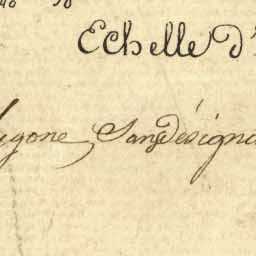 Echelle d'
lygone, Sans désigna